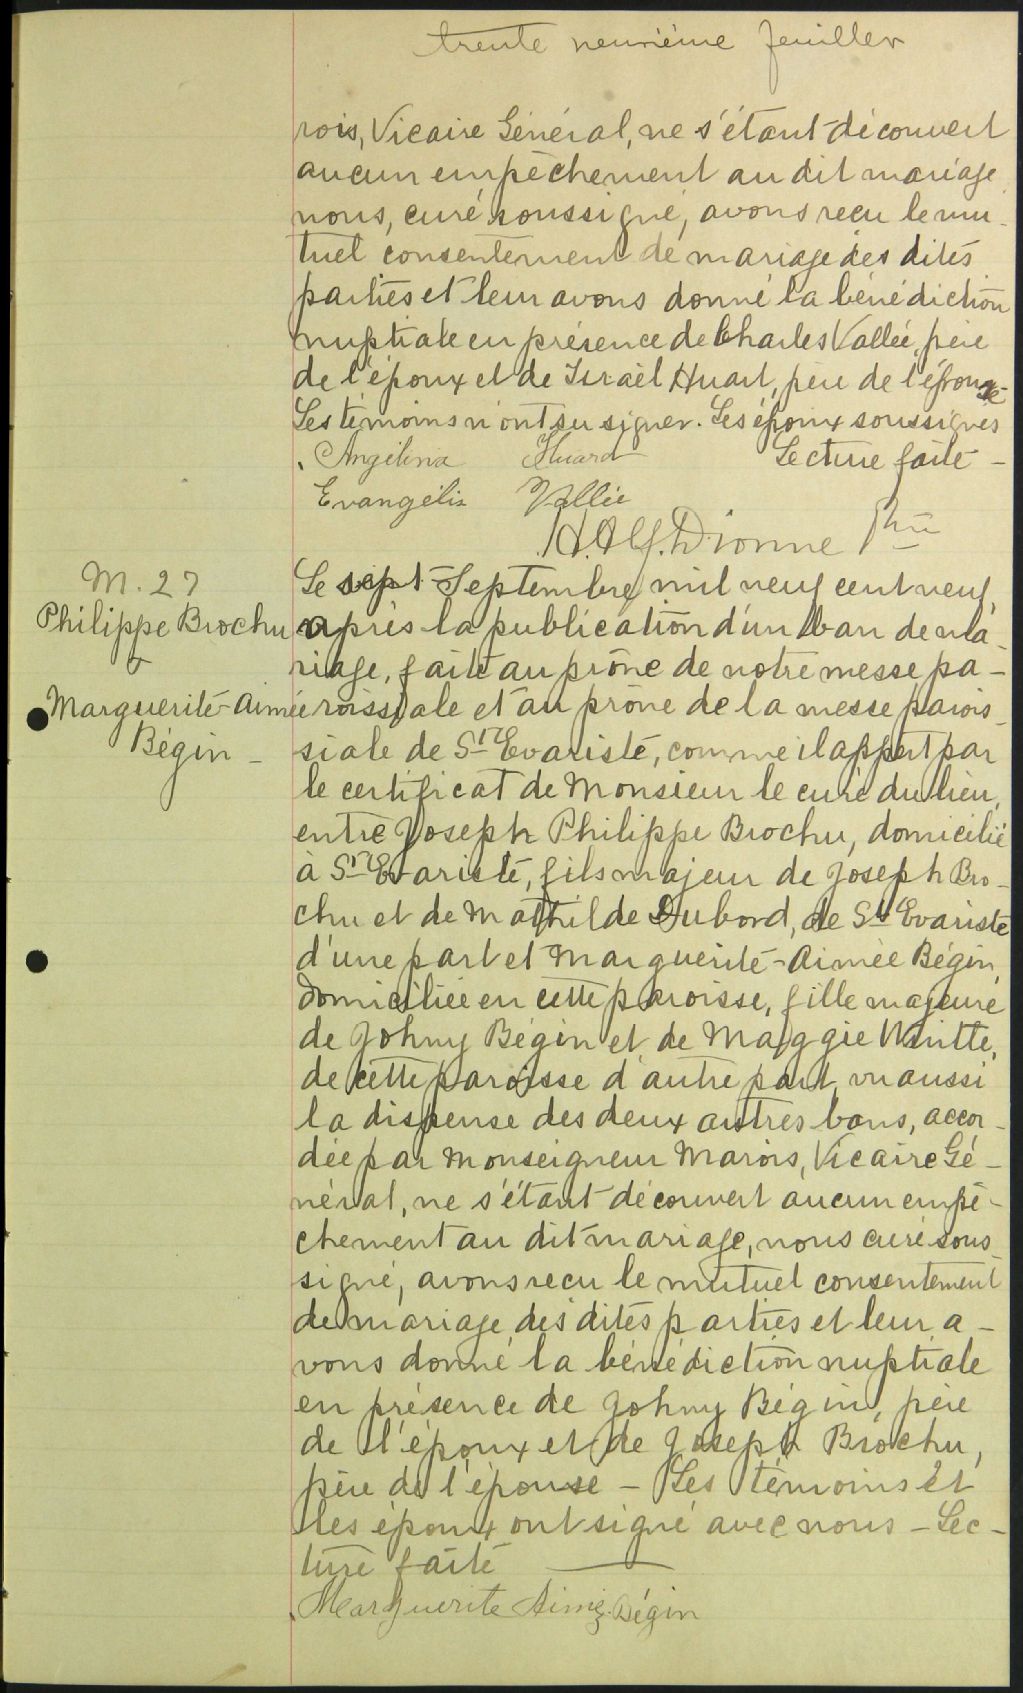 trente neuvième feuillet
rois, Vicaire Général, ne s'étant découvert
aucun empêchement au dit mariage,
nous, curé soussigné, avons reçu le mu-
tuel consentement de mariage des dites
parties et leur avons donné la bénédiction
nuptiale en présence de Charles Vallée, père
de l'époux et de Israël Huart, père de l'épouse
Les témoins n'ont su signer. Les époux soussignés
Lecture faite -
Angélina Huard
Evangélis Vallée
H. Alf. Dionne Ptre
M. 27
Philippe Brochu
&
Marguerite-Aimée
Bégin -
Le sept Septembre mil neuf cent neuf,
après la publication d'un ban de ma-
riage, faite au prône de notre messe pa-
roissiale et au prône de la messe parois-
siale de St Evariste, comme il appert par
le certificat de Monsieur le curé du lieu,
entre Joseph Philippe Brochu, domicilié
à St Evariste, fils majeur de Joseph Bro-
chu et de Mathilde Dubord, de St Evariste
d'une part et Marguerite-Aimée Bégin,
domiciliée en cette paroisse, fille majeure
de Johny Bégin et de Maggie Whitte,
de cette paroisse d'autre part, vu aussi
la dispense des deux autres bans, accor-
dée par Monseigneur Marois, Vicaire Gé-
néral, ne s'étant découvert aucun empê-
chement au dit mariage, nous curé sous-
signé, avons reçu le mutuel consentement
de mariage des dites parties et leur a-
vons donné la bénédiction nuptiale
en présence de Johny Bégin, père
de l'époux et de Joseph Brochu,
père de l'épouse - Les témoins et
les époux ont signé avec nous - Lec-
ture faite
Marguerite Aimée Bégin